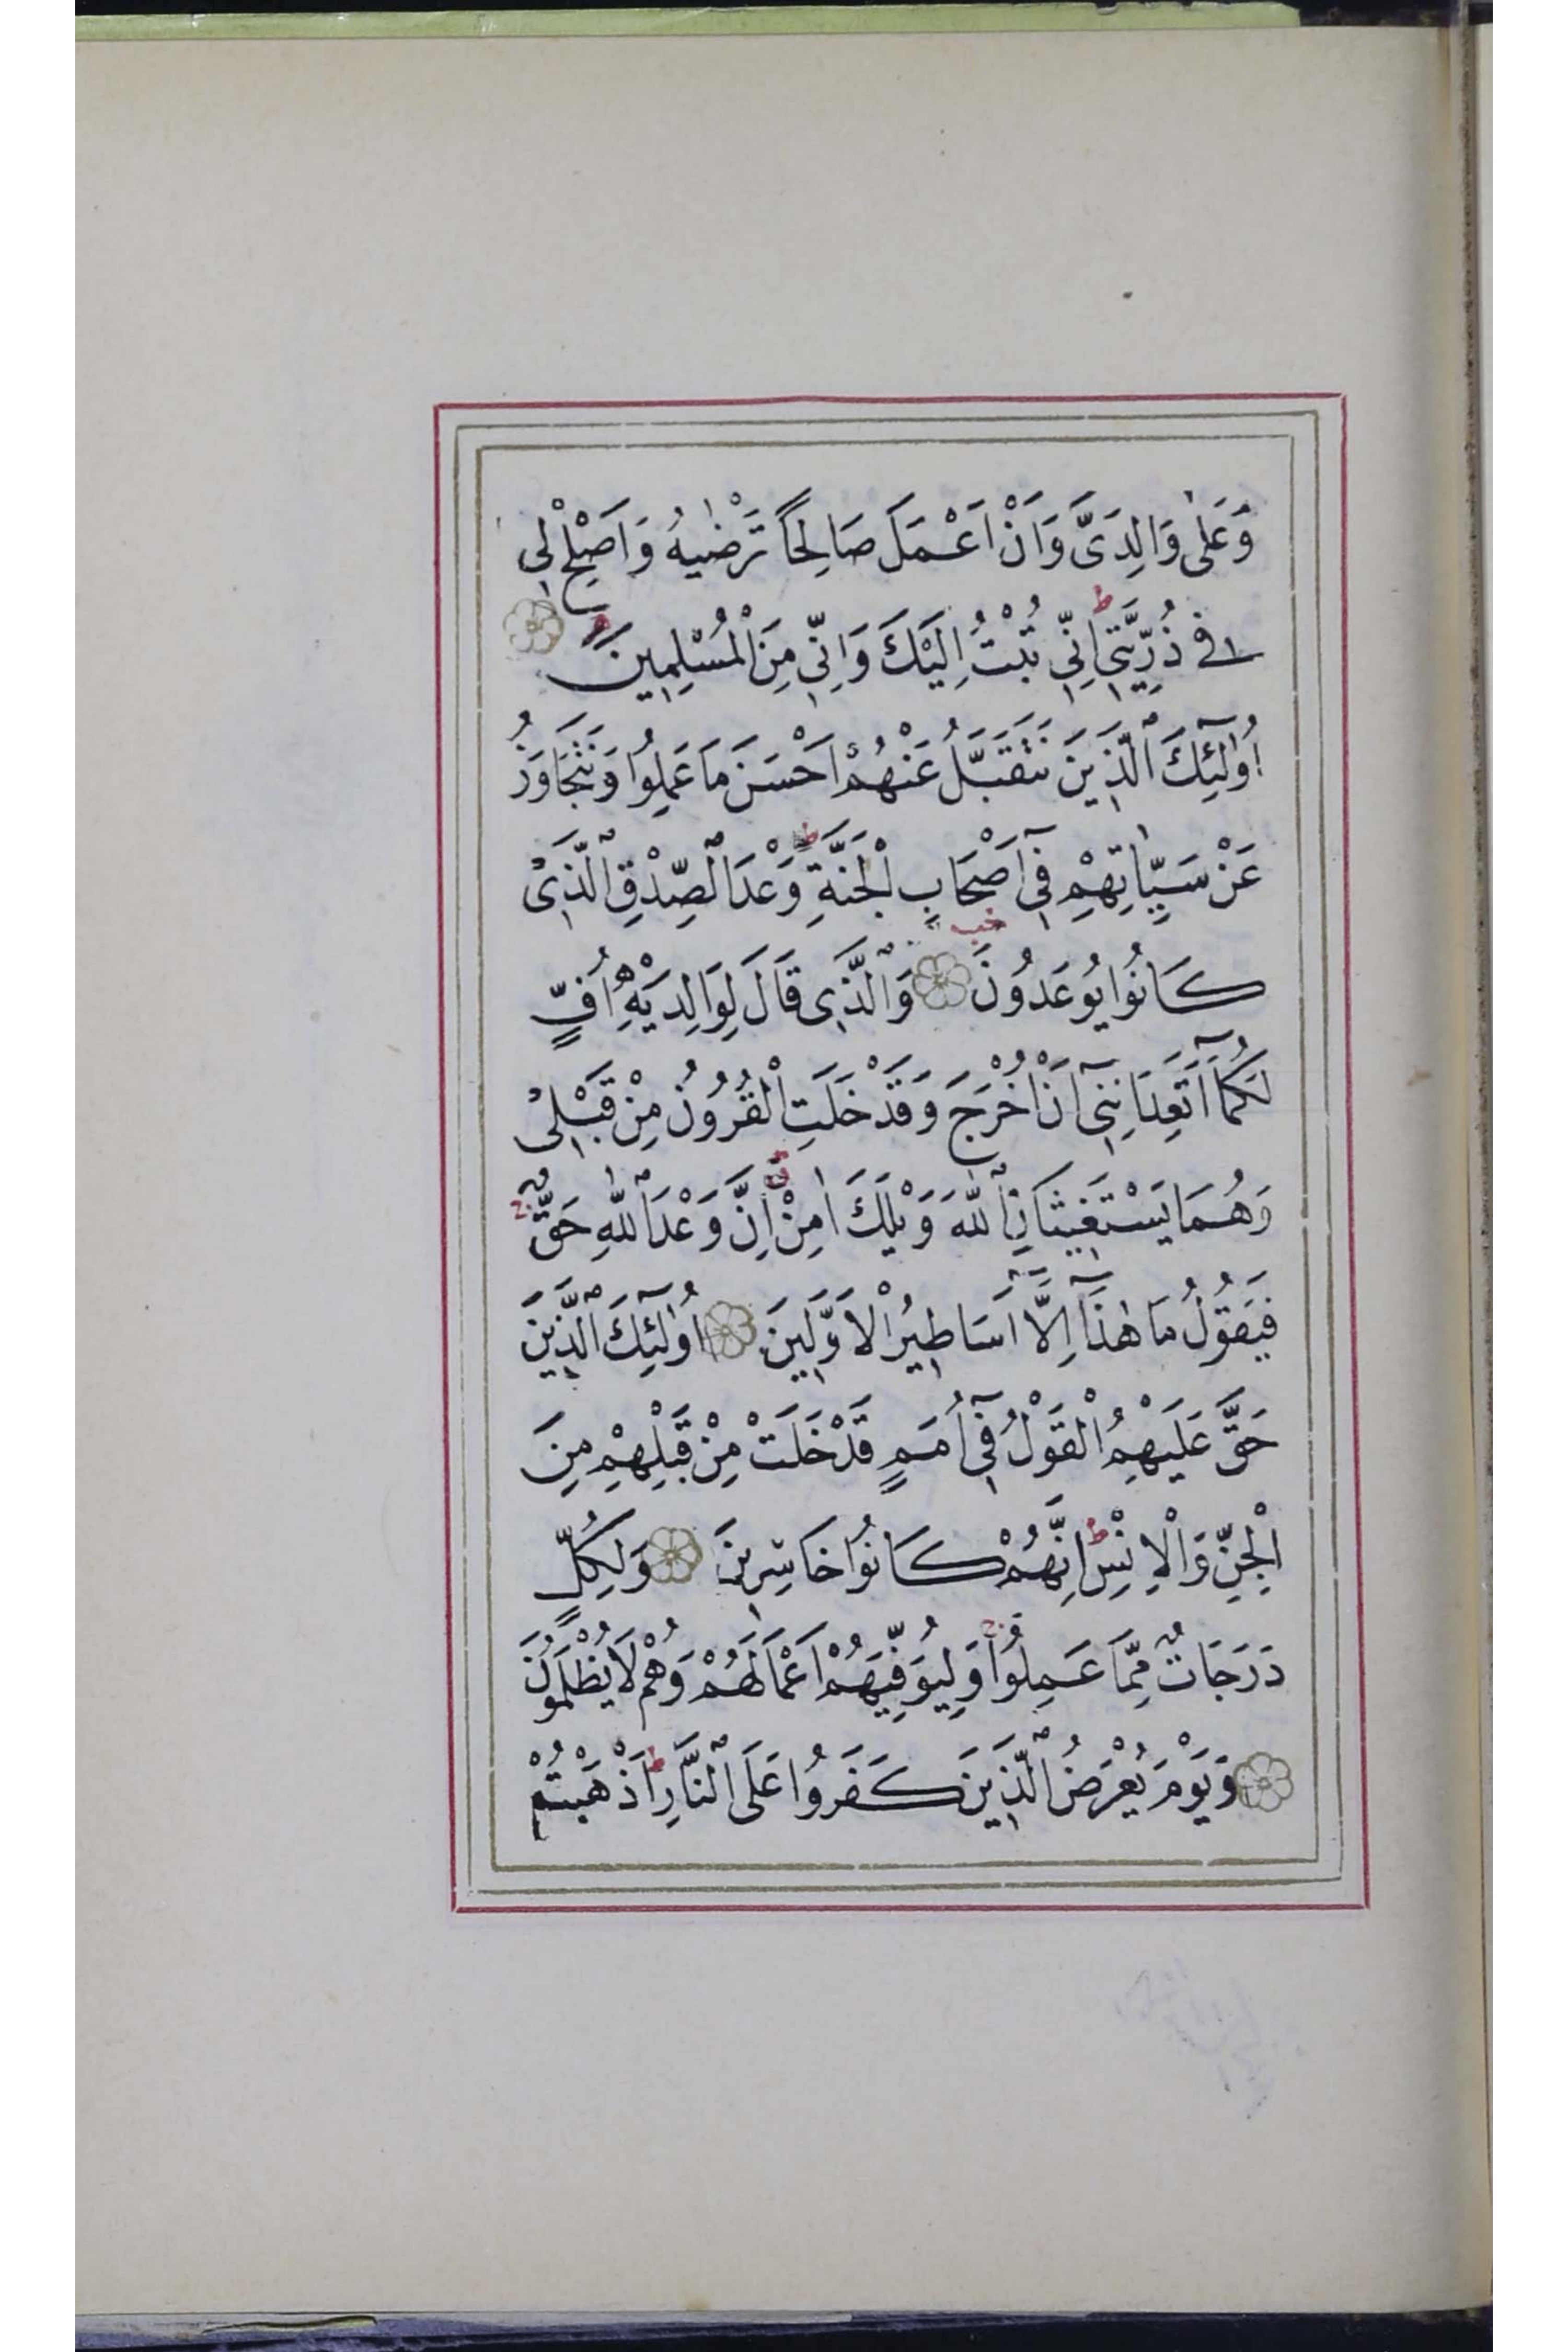 وَعَلٰى وَالِدَىَّ وَاَنْ اَعْمَلَ صَالِحًا تَرْضٰيهُ وَاَصْلِحْ لِى
فِى ذُرِّيَّتِى ط اِنِّى تُبْتُ اِلَيْكَ وَاِنِّى مِنَ الْمُسْلِمِينَ
اُولٰٓئِكَ الَّذِينَ نَتَقَبَّلُ عَنْهُمْ اَحْسَنَ مَا عَمِلُوا وَنَتَجَاوَزُ
عَنْ سَيِّاٰتِهِمْ فِٓى اَصْحَابِ الْجَنَّةِ ط وَعْدَ الصِّدْقِ الَّذِى
كَانُوا يُوعَدُونَ وَالَّذِى قَالَ لِوَالِدَيْهِ اُفٍّ
لَكُمَٓا اَتَعِدَانِنِٓى اَنْ اُخْرَجَ وَقَدْ خَلَتِ الْقُرُونُ مِنْ قَبْلِى
وَهُمَا يَسْتَغِيثَانِ اللّٰهَ وَيْلَكَ اٰمِنْ اِنَّ وَعْدَ اللّٰهِ حَقٌّ ج
فَيَقُولُ مَا هٰذَٓا اِلَّٓا اَسَاطِيرُ الْاَوَّلِينَ اُولٰٓئِكَ الَّذِينَ
حَقَّ عَلَيْهِمُ الْقَوْلُ فِٓى اُمَمٍ قَدْ خَلَتْ مِنْ قَبْلِهِمْ مِنَ
الْجِنِّ وَالْاِنْسِ ط اِنَّهُمْ كَانُوا خَاسِرِينَ وَلِكُلٍّ
دَرَجَاتٌ مِمَّا عَمِلُوا ج وَلِيُوَفِّيَهُمْ اَعْمَالَهُمْ وَهُمْ لَا يُظْلَمُونَ
وَيَوْمَ يُعْرَضُ الَّذِينَ كَفَرُوا عَلَى النَّارِ ط اَذْهَبْتُمْ